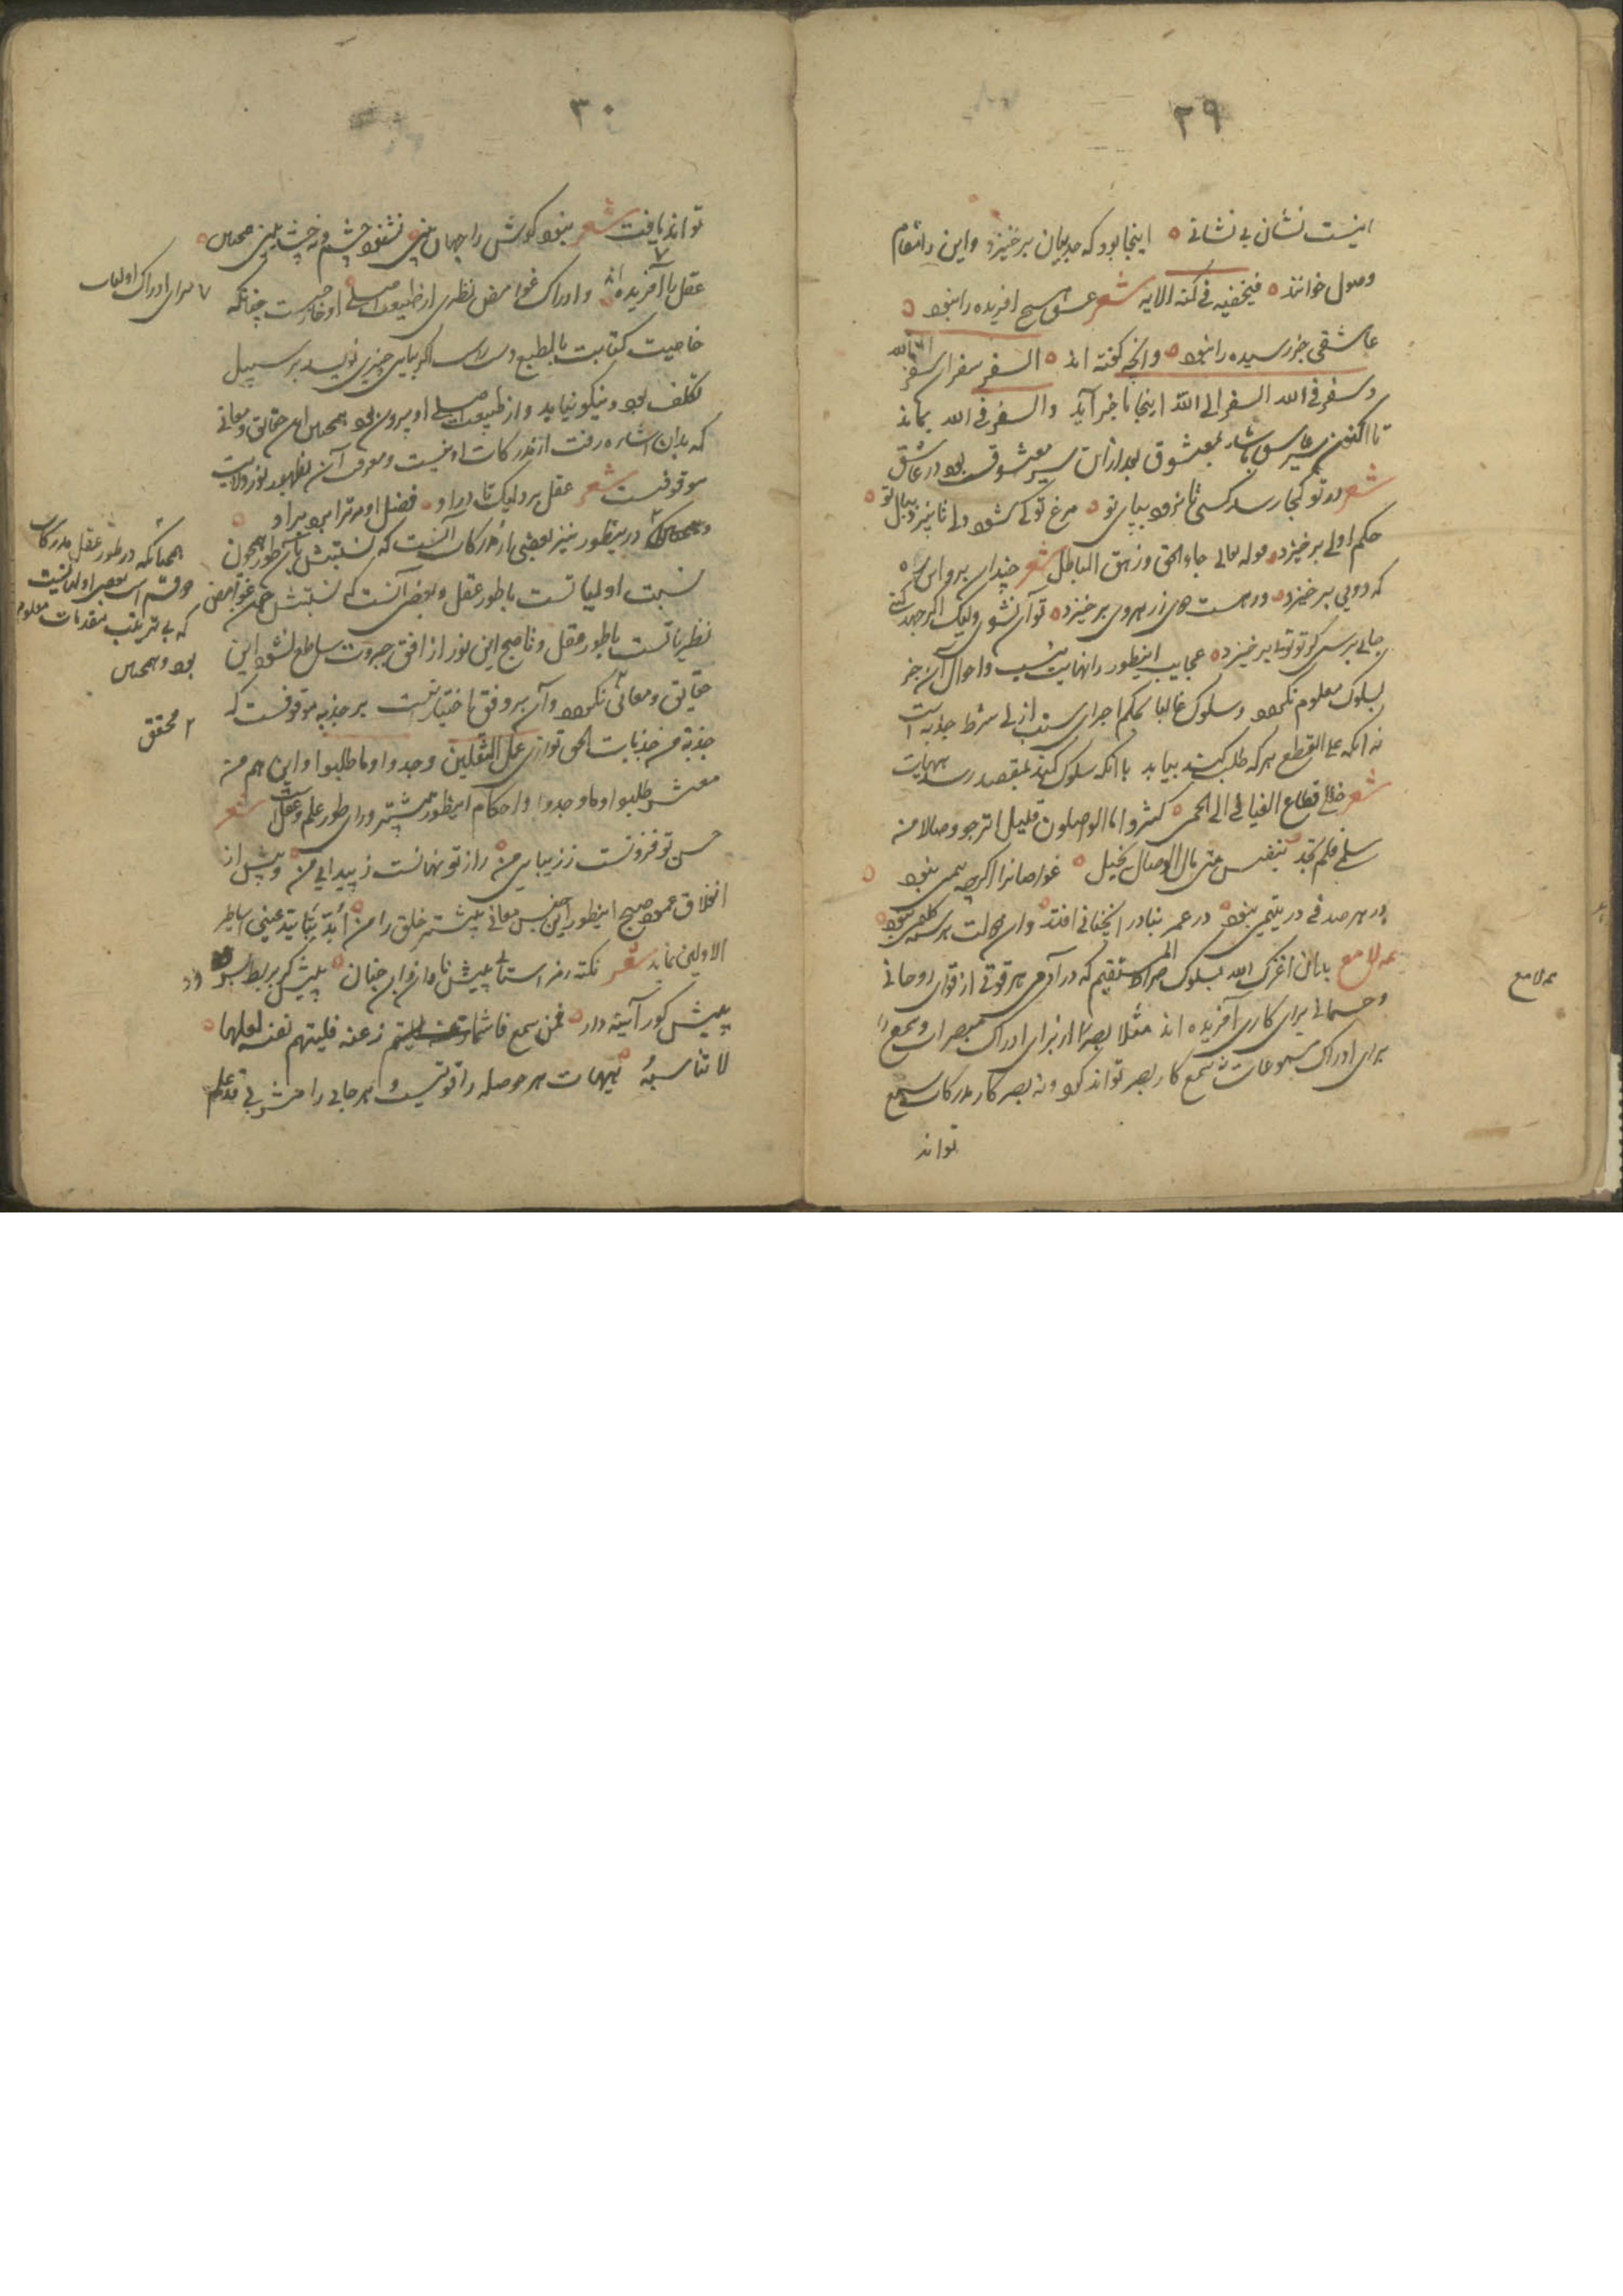 ٢٩
اینست نشان بی نشانی ه اینجا بود که حد بیان برخیزد و این را مقام
وصول خوانند ه فیخفیه فی کنه الایه شعر عشق هیچ افریده را نبود ه
عاشقی جز رسیده را نبود ه و آنچه گفته اند ه السفر سفران سفر الی الله
و سفر فی الله السفر الی الله اینجا باخر آید و السفر فی الله بماند
تا اکنون سیر عاشق باشد بمعشوق بعد ازان سیر معشوق بود در عاشق
شعر در تو کجا رسد کسی تا نرود بپای تو ه مرغ تو کی شود دلی تا نپرد ببال تو ه
حکم اولی برخیزد ه قوله تعالی جاء الحق و زهق الباطل شعر چندان برو این ره
که دویی برخیزد ه ور هست دوی ز رهروی برخیزد ه تو آن نشوی ولیک اگر جهد کنی
جایی برسی کز تو توئی برخیزد ه عجایب اینطور را نهایت نیست و احوال آن جز
بسلوک معلوم نگردد و سلوک غالبا بحکم اجرای سنت ازلی شرط جذبه است
نه انکه علی القطع هرکه طلب کند بیابد یا انکه سلوک کند بمقصد رسد هیهات
شعر خلیلی قطاع الفیافی الی الحمی ه کثیر و اما الواصلون قلیل اترجو وصالا من
سلمی فلم تجد بنفس متی نال الوصال بخیل ه غواصانرا اگرچه بیمی نبود ه
در هر صدفی در یتیمی نبود ه در عمر بنادر انچنانی افتد ه وان حالت هر سیه گلیمی نبود ه
عه لامع بدان اعزک الله بسلوک الصراط المستقیم که در آدمی هر قوتی از قوای روحانی
و جسمانی برای کاری آفریده اند مثلا بصر را از برای ادراک مبصرات و سمع را
برای ادراک مسموعات نه سمع کار بصر تواند کرد و نه بصر کار مدرکات سمع
تواند
عه لامع
٣٠
تواند یافت شعر نبود گوش را جهان بینی نشنود چشم و نه چشد بینی همچنین ه
عقل را آفریده اند و ادراک غوامض نظری از طبیعت اصلی او خارجست چنانکه
٧ برای ادراک اولیات
خاصیت کتابت بالطبع دست راست اگر بپای چیزی نویسد بر سبیل
تکلف بود و نیکو نیاید و از طبیعت اصلی او بیرون بود همچنین این حقایق و معانی
که بدان اشاره رفت از مدرکات او نیست و معرفت آن بظهور نور ولایت
موقوفست شعر عقل برد لیک تا در او ه فضل او مر ترا برد بر او ه
و همچنانکه در ینطور نیز بعضی از مدرکات آنست که نسبتش بآن طور همچون
نسبت اولیاتست باطور عقل و بعضی آنست که نسبتش همچون غوامض
نظریاتست باطور عقل و تا صبح این نور از افق جبروت ساطع نشود این
حقایق و معانی نگردد و آن بر وفق اختیار نیست بر جذبه موقوفست که
جذبة من جذبات الحق توازی عمل الثقلین وجدوا و ما طلبوا و این هم من
معشر طلبوا و ما وجدوا و احکام اینطور بیشتر ورای طور علم و عقلست شعر
حسن تو فزونست ز زیبایی من ه راز تو نهانست ز پیدایی من ه و پیش از
انفلاق عمود صبح اینطور این جنس معانی بیشتر خلق را من
الاولین نماید شعر نکته رمز استاد پیش نادان چنان ه پیش کر بربط سرود
پیش کور آینه دار ه فمن سمع فاشمأز عنه فلیتهم نفسه لعلها
لا تناسبه ه هیهات هر حوصله را قوتیست و هر جانی را مشربی قد علم
همچنانکه در طور عقل مدرکات
دو قسم است بعضی اولیاتست
که بی ترتیب مقدمات معلوم
بود و همچنین
٢ محقق